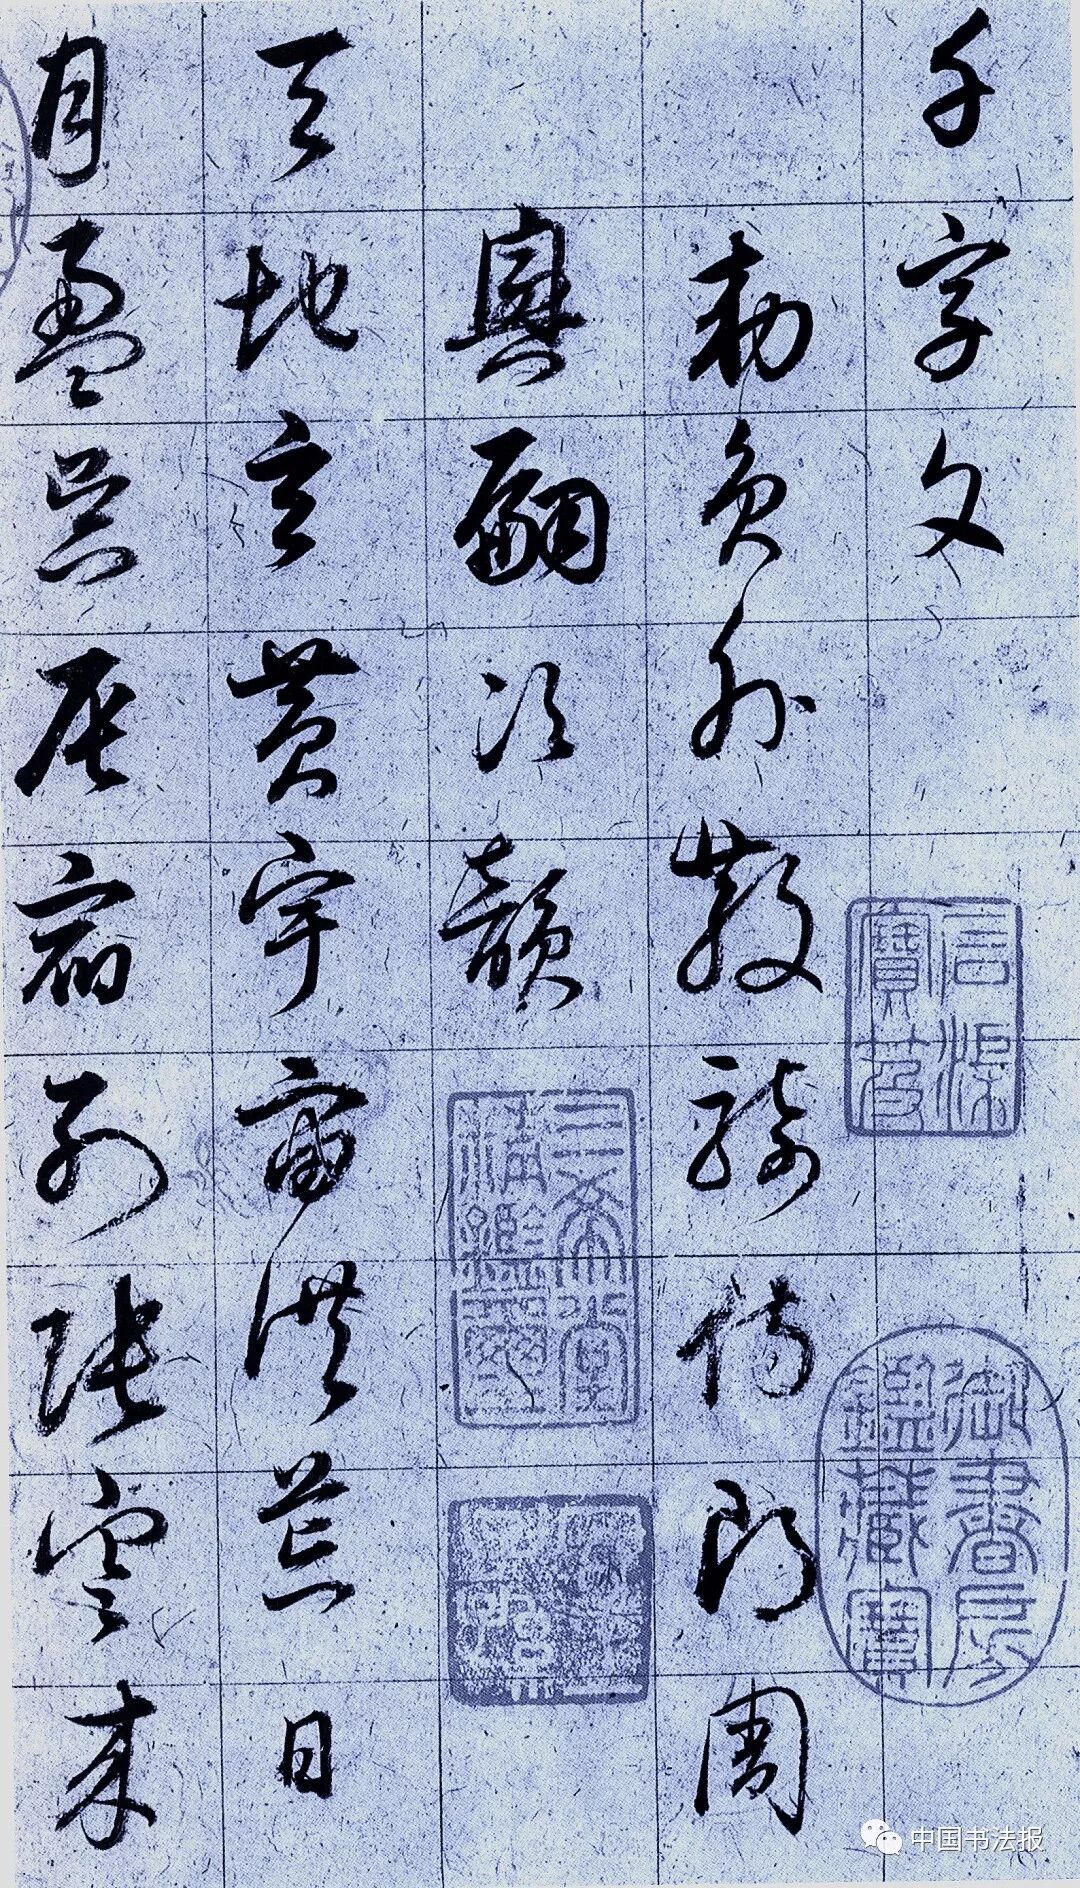 千字文
勅員外散騎侍郎周
興嗣次韻
天地玄黃宇宙洪荒日
月盈昃辰宿列張寒來
石渠寶笈
三希堂精鑑璽
御書房鑑藏寶
中国书法报